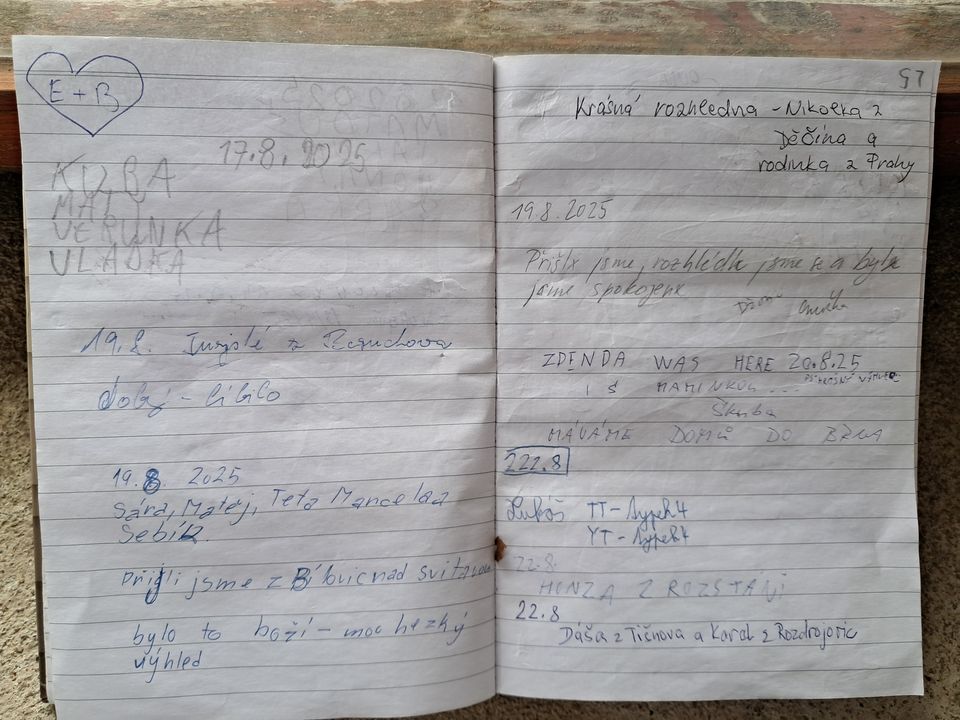 E + B
17.8.2025
KUBA
MÁJ
VERUNKA
VLAĎKA
19.8.
dobrý - líbilo
19.8. 2025
Sára, Matěj, Teta Marcelaa
Sebík
Přijli jsme z Bílovic nad svitavou
bylo to boží - moc hezký
výhled
Krásná rozhledna - Nikolka z
Děčína a
rodinka z Prahy
19.8.2025
Přišly jsme, rozhlédly jsme se a byly
jsme spokojené
ZDENDA WAS HERE 20.8.25
I S MAMINKOU...
Škuba
MÁVÁME DOMŮ DO BRNA
222.8
Lukáš TT - Aypek4
YT - Aypek4
22.8.
HONZA Z ROZSTÁNÍ
22.8
Dáša z Tišnova a Karel z Rozdrojovic